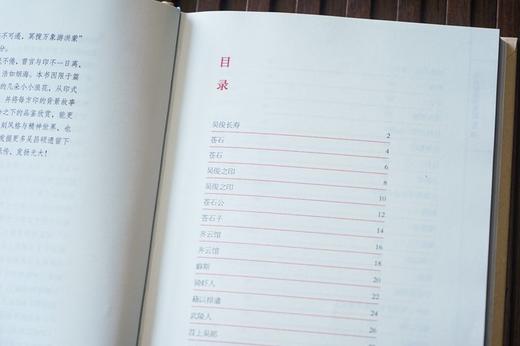 不可遏，冥搜万象游洪蒙”
分。
不倦，尝言与印不一日离，
浩如烟海。本书因限于篇
的几朵小小浪花，从印式
并将每方印的背景故事
之下的品鉴欣赏，能更
刻风格与精神世界，也
发掘更多吴昌硕遗留下
承传，发扬光大！
目
录
吴俊长寿 2
苍石 4
苍石 6
吴俊之印 8
吴俊之印 10
苍石公 12
苍石子 14
齐云馆 16
齐云馆 18
癖斯 20
骑虾人 22
藉以排遣 24
武陵人 26
苕上吴郎